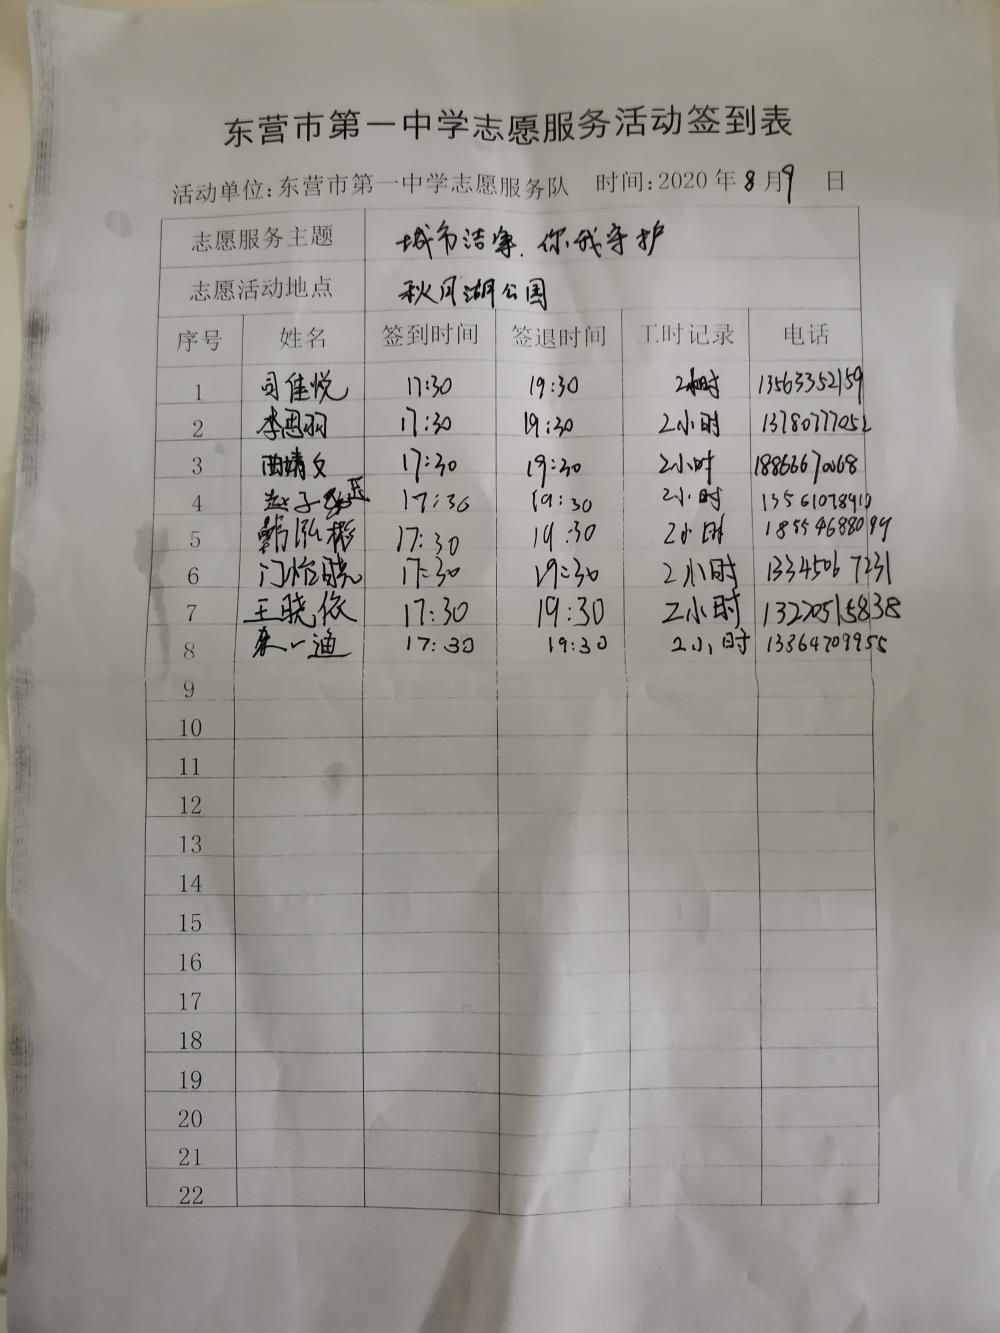 东营市第一中学志愿服务活动签到表
活动单位:东营市第一中学志愿服务队 时间:2020年8月9日
志愿服务主题 城市洁净.你我守护
志愿活动地点 秋月湖公园
序号 姓名 签到时间 签退时间 工时记录 电话
1 司佳悦 17:30 19:30 2小时 13563352159
2 李思羽 17:30 19:30 2小时 13780777052
3 曲婧文 17:30 19:30 2小时 18866670068
4 赵子 17:30 19:30 2小时
5 韩泓彬 17:30 19:30 2小时 18554688099
6 门怡晓 17:30 19:30 2小时 13345067231
7 王晓依 17:30 19:30 2小时 13220515838
8 一通 17:30 19:30 2小时 13364709955
9
10
11
12
13
14
15
16
17
18
19
20
21
22